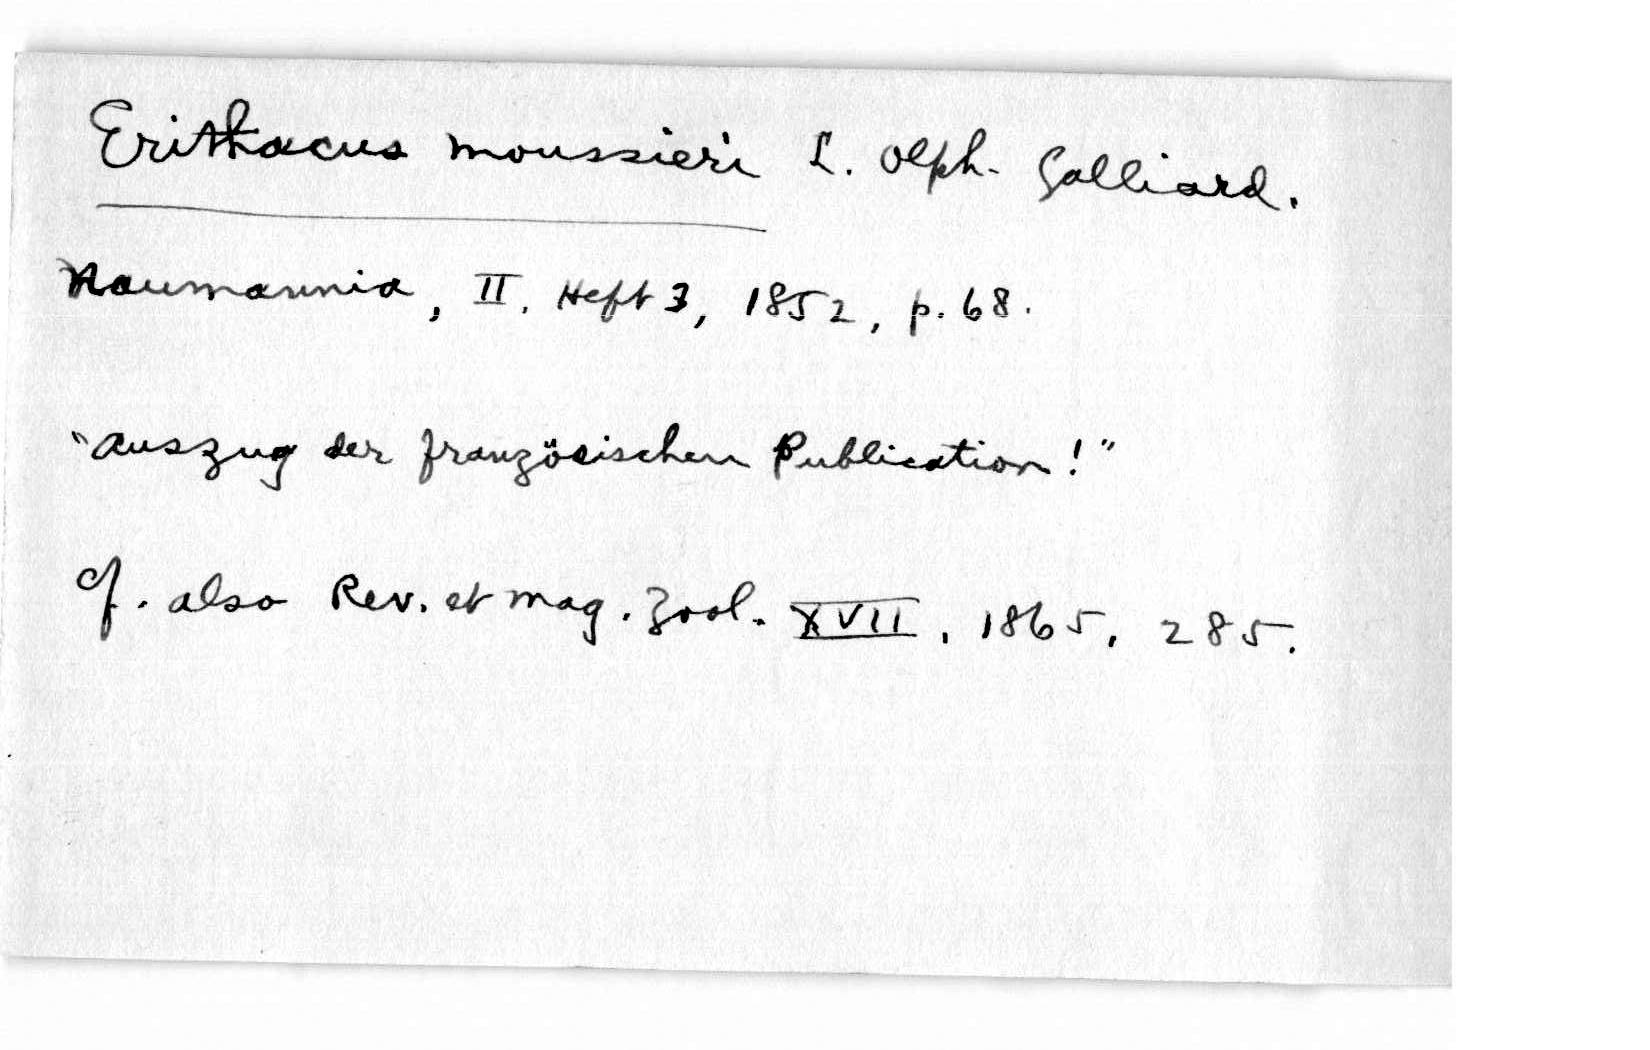 Erithacus moussieri L. Olph-Galliard.
Naumannia, II. Heft 3, 1852, p. 68.
"Auszug der französischen Publication!"
cf. also Rev. et mag. Zool. XVII, 1865, 285.